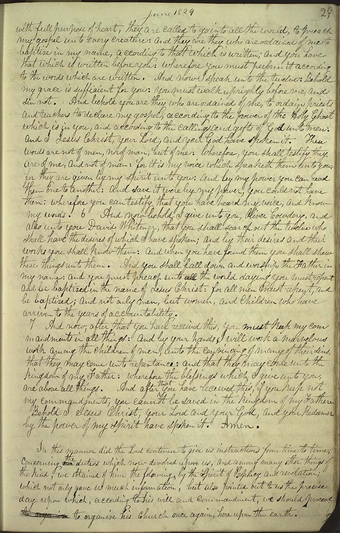 June 1829
29
with full purpose of heart, they are called to go into all the world, to preach
my gospel unto every creature: And they are they who are ordained of me to
baptize in my name, according to that which is written; and you have
that which is written before you; wherefore you must perform it according
to the words which are written. And now I speak unto the twelve: behold
my grace is sufficient for you: you must walk uprightly before me, and
sin not. And behold you are they who are ordained of me, to ordain priests
and teachers to declare my gospel, according to the power of the Holy Ghost
which is in you, and according to the callings and gifts of God unto men:
and I Jesus Christ, your Lord and your God have spoken it. These
words are not of men, nor of man, but of me: Wherefore, you shall testify they
are of me, and not of man: for it is my voice which speaketh them unto you:
for they are given by my Spirit unto you: and by my power you can read
them one to another: and save it were by my power, you could not have
them: wherefore you can testify that you have heard my voice, and know
my words. 6 And now behold, I give unto you, Oliver Cowdery, and
also unto you David Whitmer, that you shall search out the twelve who
shall have the desires of which I have spoken; and by their desires and their
works you shall know them: And when you have found them you shall show
these things unto them. And you shall fall down and worship the Father in
my name: and you must preach unto the world, saying you must repent
and be baptized in the name of Jesus Christ: for all men must repent, and
be baptized; and not only men, but women, and Children who have
arriven to the years of accountability.
7 And now, after that you have received this, you must keep my com
mandments in all things: and by your hands I will work a marvelous
work among the children of men, unto the convincing of many of their sins,
that they may come unto repentance: and that they may come unto the
kingdom of my Father: Wherefore the blessings which I give unto you
are above all things. And after you have received this, if you keep not
my commandments, you cannot be saved in the kingdom of my Father
Behold I Jesus Christ, your Lord and your God, and your Redeemer
by the power of my Spirit have spoken it. Amen.
In this manner did the Lord continue to give us instructions from time to time,
concerning the duties which now devolved upon us, and among many other things of
the kind, we obtained of him the following, by the Spirit of Prophecy and revelation;
which not only gave us much information, but also pointed out to us the precise
day upon which, according to his will and commandment, we should proceed
to organize his Church once again, here upon the earth.